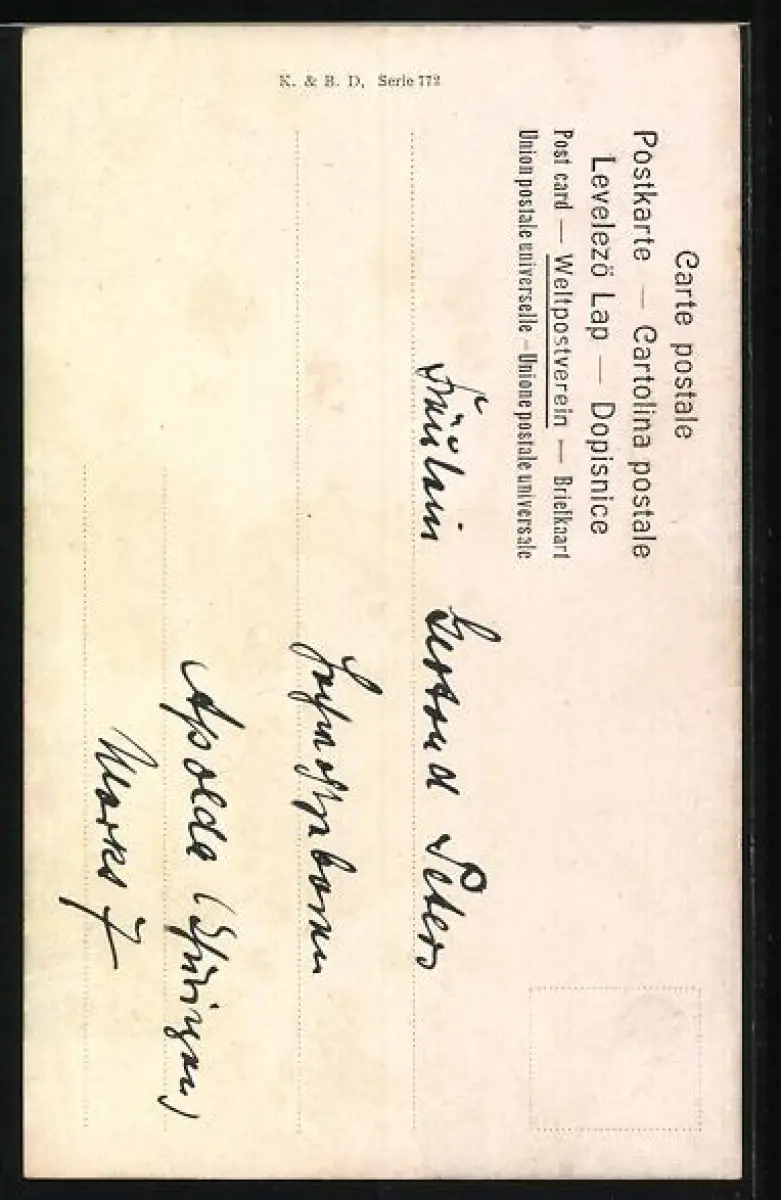 Carte postale
Postkarte — Cartolina postale
Levelező Lap — Dopisnice
Post card — Weltpostverein — Briefkaart
Union postale universelle – Unione postale universale
Fräulein Gertrud Peters
Apolda (Thüringen)
Markt 7
K. & B. D, Serie 772